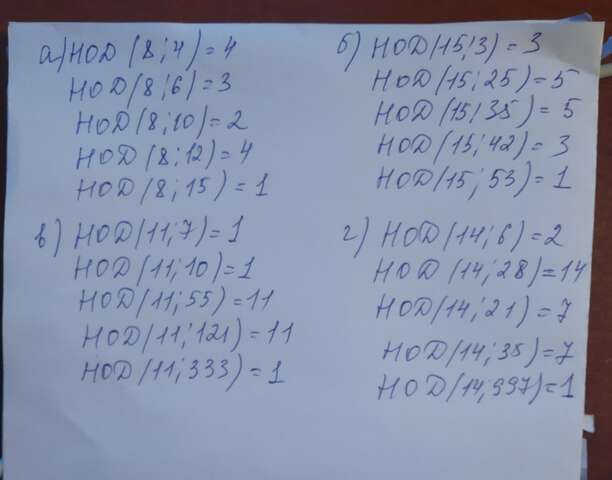 а) НОD (8;4) = 4
НОD (8;6) = 3
НОD (8;10) = 2
НОD (8;12) = 4
НОD (8;15) = 1
б) НОD (15;3) = 3
НОD (15;25) = 5
НОD (15;35) = 5
НОD (15;42) = 3
НОD (15;53) = 1
в) НОD (11;7) = 1
НОD (11;10) = 1
НОD (11;55) = 11
НОD (11;121) = 11
НОD (11;333) = 1
г) НОD (14;6) = 2
НОD (14;28) = 14
НОD (14;21) = 7
НОD (14;35) = 7
НОD (14;997) = 1